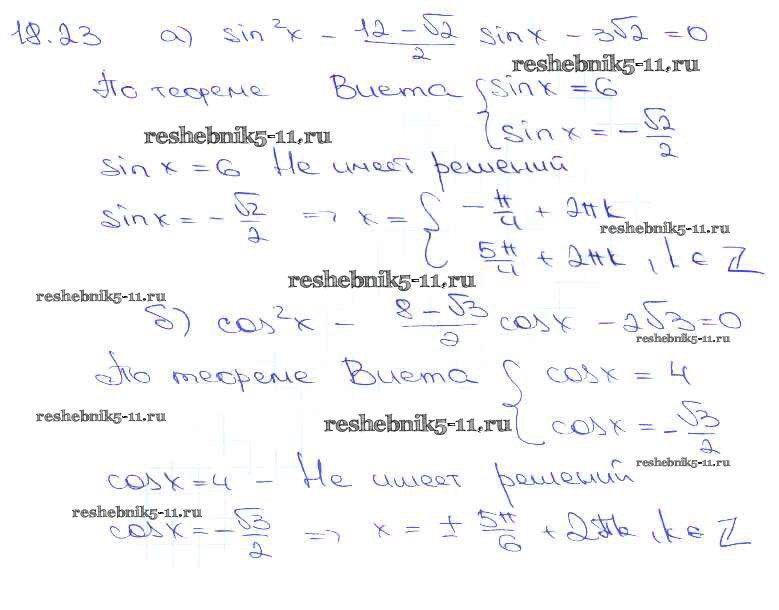 18.23 а) sin²x - (12 - √2)/2 sinx - 3√2 = 0
reshebnik5-11.ru
По теореме Виета { sinx = 6
reshebnik5-11.ru
sinx = - √2/2
sinx = 6 Не имеет решений
sinx = - √2/2 => x = { - π/4 + 2πk
reshebnik5-11.ru
5π/4 + 2πk, k ∈ Z
reshebnik5-11.ru
reshebnik5-11.ru
б) cos²x - (8 - √3)/2 cosx - 2√3 = 0
reshebnik5-11.ru
По теореме Виета { cosx = 4
reshebnik5-11.ru
reshebnik5-11.ru
cosx = - √3/2
reshebnik5-11.ru
cosx = 4 - Не имеет решений
reshebnik5-11.ru
cosx = - √3/2 => x = ± 5π/6 + 2πk, k ∈ Z